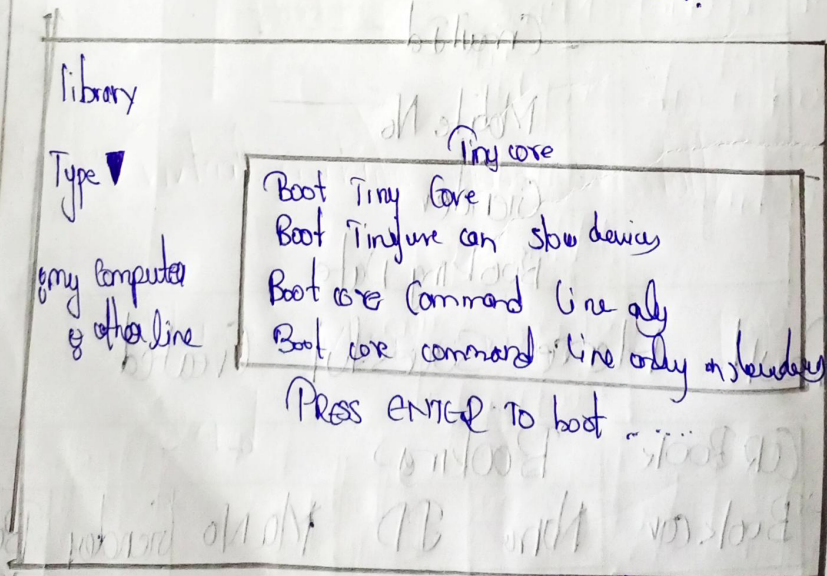 library
Type
my Computer
other line
Tiny core
Boot Tiny Core
Boot Tiny can slow devices
Boot core Command line
Boot core command line only on
PRESS ENTER TO boot ......